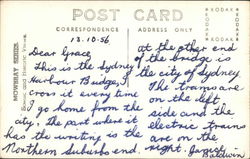 POST CARD
CORRESPONDENCE
ADDRESS ONLY
13.10.56
MOWBRAY SERIES
KODAK
KODAK
Dear Grace,
This is the Sydney
Harbour Bridge, I
cross it every time
I go home from the
city, the part where it
has the writing is the
Northern suburbs end.
at the other end
of the bridge is
the city of Sydney
The trams are
on the left
side and the
electric trains
are on the
right.
Baldwin